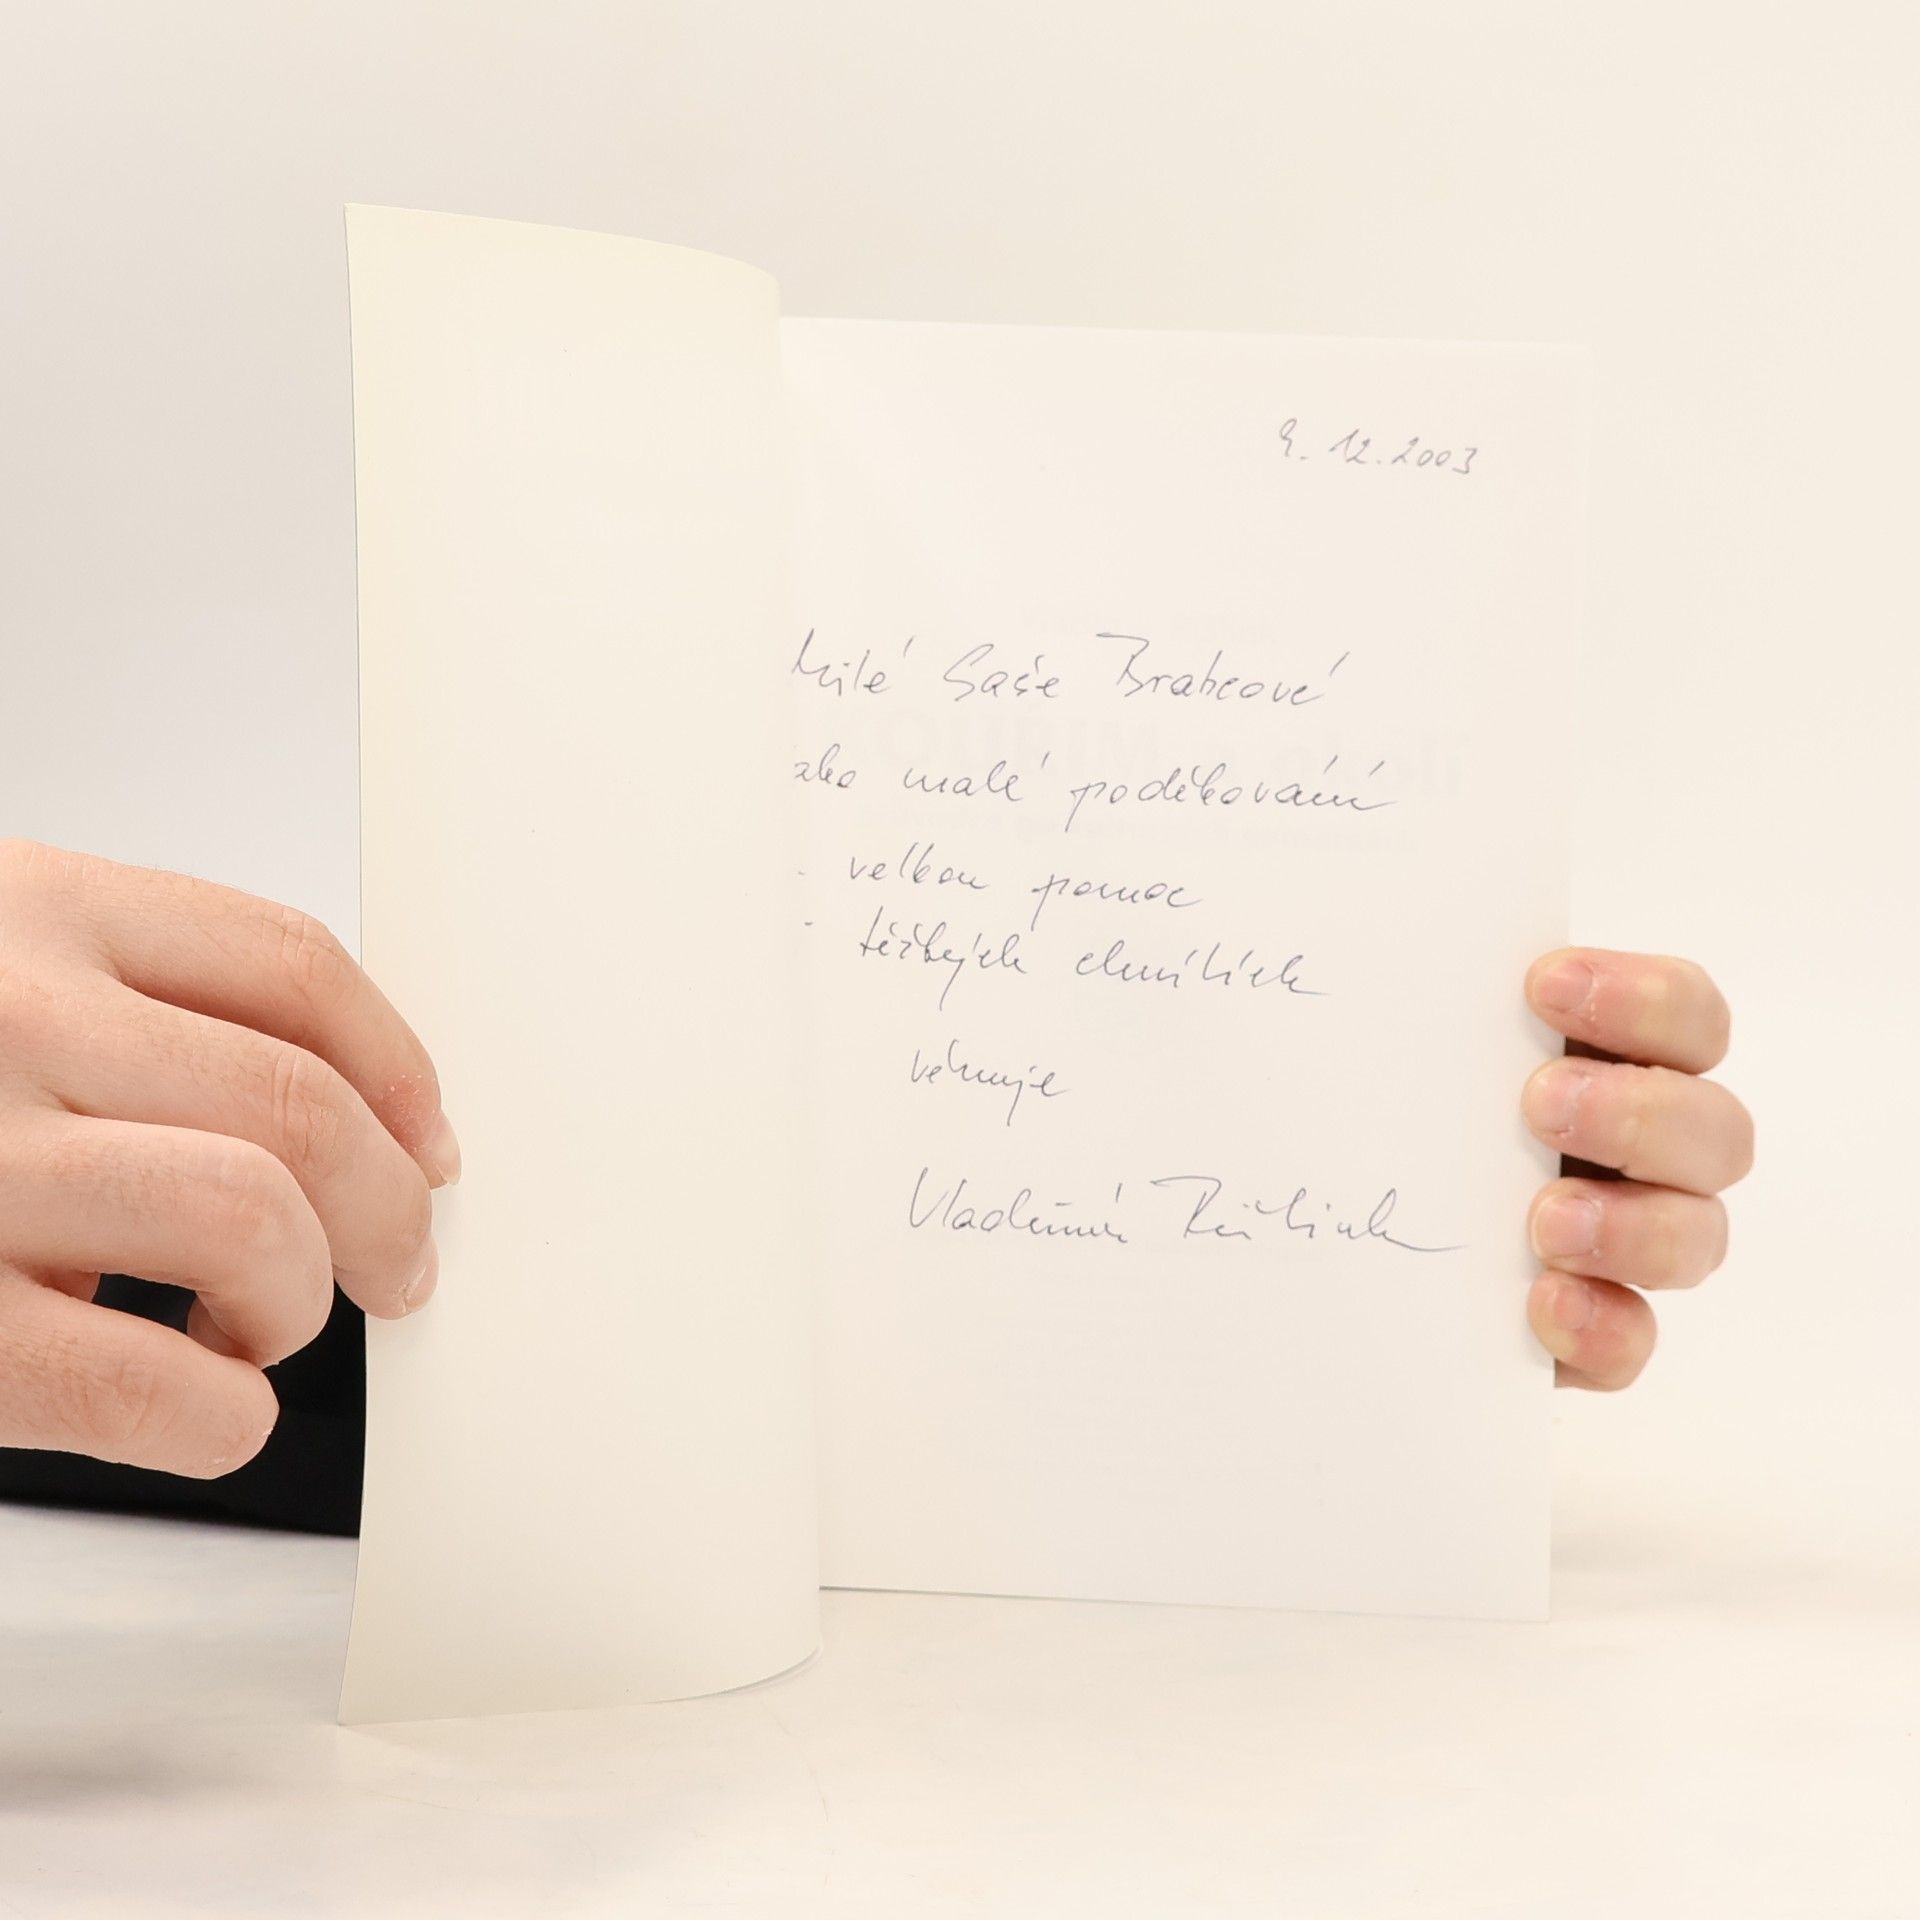 9. 12. 2003
Milé Saše Brabcové
ako malé poděkování
- velkou pomoc
- těžkých chvílích
věnuje
Vladimír Růžička